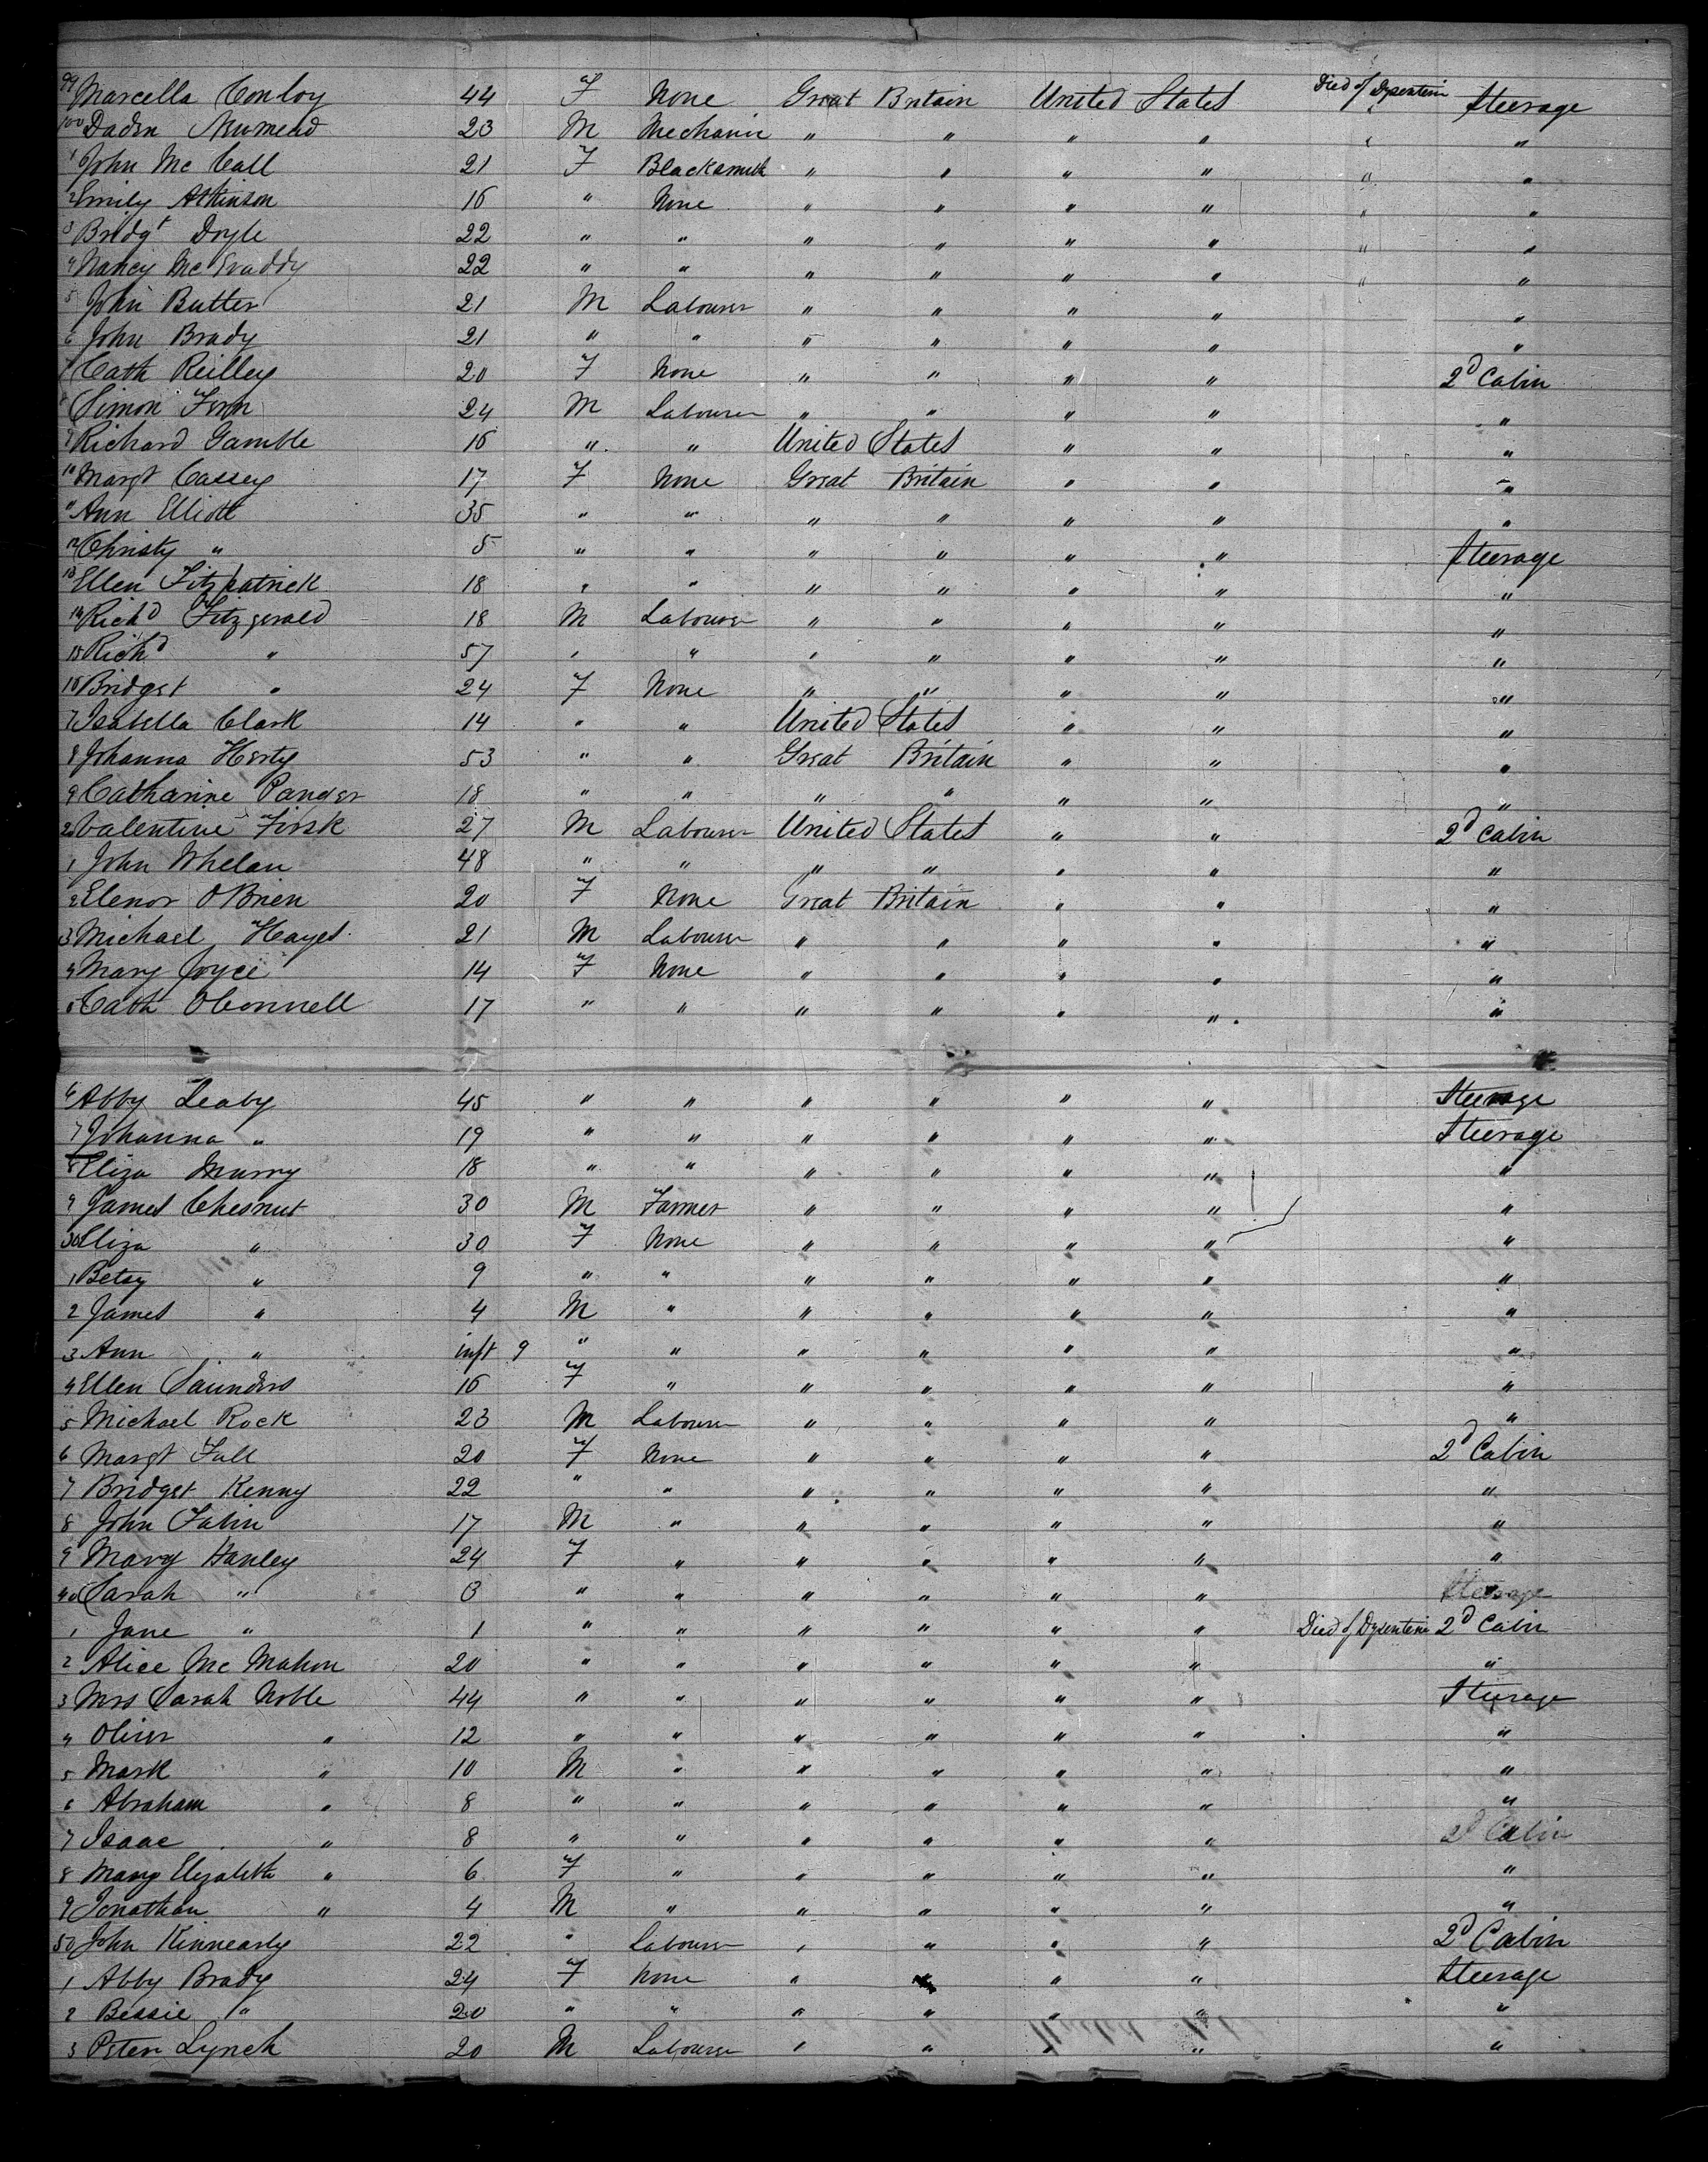 99 Marcella Conloy 44 F None Great Britain United States Died of Dysenterie Steerage
100 Daden Mumend 23 M Mechanic " " " " " "
1 John Mc Call 21 F Blacksmith " " " " " "
2 Emily Atkinson 16 " None " " " " " "
3 Bridgt Doyle 22 " " " " " " " "
4 Nancy McGraddy 22 " " " " " " " "
5 John Butler 21 M Labourer " " " " "
6 John Brady 21 " " " " " " "
7 Cath Reilley 20 F None " " " " 2d Cabin
8 Simon Fenn 24 M Labourer " " " " "
9 Richard Gamble 16 " " United States " " "
10 Margt Cassey 17 F None Great Britain " " "
11 Ann Elliott 35 " " " " " " "
12 Christy " 5 " " " " " " Steerage
13 Ellen Fitzpatrick 18 " " " " " " "
14 Richd Fitzgerald 18 M Labourer " " " " "
15 Richd " 57 " " " " " " "
16 Bridget " 24 F None " " " " "
7 Isabella Clark 14 " " United States " " "
8 Johanna Herty 53 " " Great Britain " " "
9 Catharine Panger 18 " " " " " " "
20 Valentine Firsk 27 M Labourer United States " " 2d Cabin
1 John Whelan 48 " " " " " " "
2 Elenor OBrien 20 F None Great Britain " " "
3 Michael Hayes 21 M Labourer " " " " "
4 Mary Joyce 14 F None " " " " "
5 Cath OConnell 17 " " " " " " "
6 Abby Leahy 45 " " " " " " Steerage
7 Johanna " 19 " " " " " " Steerage
8 Eliza Murry 18 " " " " " " "
9 James Chesnut 30 M Farmer " " " " "
30 Eliza " 30 F None " " " " "
1 Betsy " 9 " " " " " " "
2 James " 4 M " " " " " "
3 Ann " inft 9 " " " " " " "
4 Ellen Saunders 16 F " " " " " "
5 Michael Rock 23 M Labourer " " " " "
6 Margt Fall 20 F None " " " " 2d Cabin
7 Bridget Kenny 22 " " " " " " "
8 John Fabin 17 M " " " " " "
9 Mary Hanley 24 F " " " " " "
40 Sarah " 3 " " " " " " Steerage
1 Jane " 1 " " " " " " Died of Dysenterie 2d Cabin
2 Alice Mc Mahon 20 " " " " " " "
3 Mrs Sarah Noble 44 " " " " " " Steerage
4 Oliver " 12 " " " " " " "
5 Mark " 10 M " " " " " "
6 Abraham " 8 " " " " " " "
7 Isaac " 8 " " " " " " 2d Cabin
8 Mary Elizabeth " 6 F " " " " " "
9 Jonathan " 4 M " " " " " "
50 John Kinnearly 22 " Labourer " " " " 2d Cabin
1 Abby Brady 24 F None " " " " Steerage
2 Bessie " 20 " " " " " " "
3 Peter Lynch 20 M Labourer " " " " "